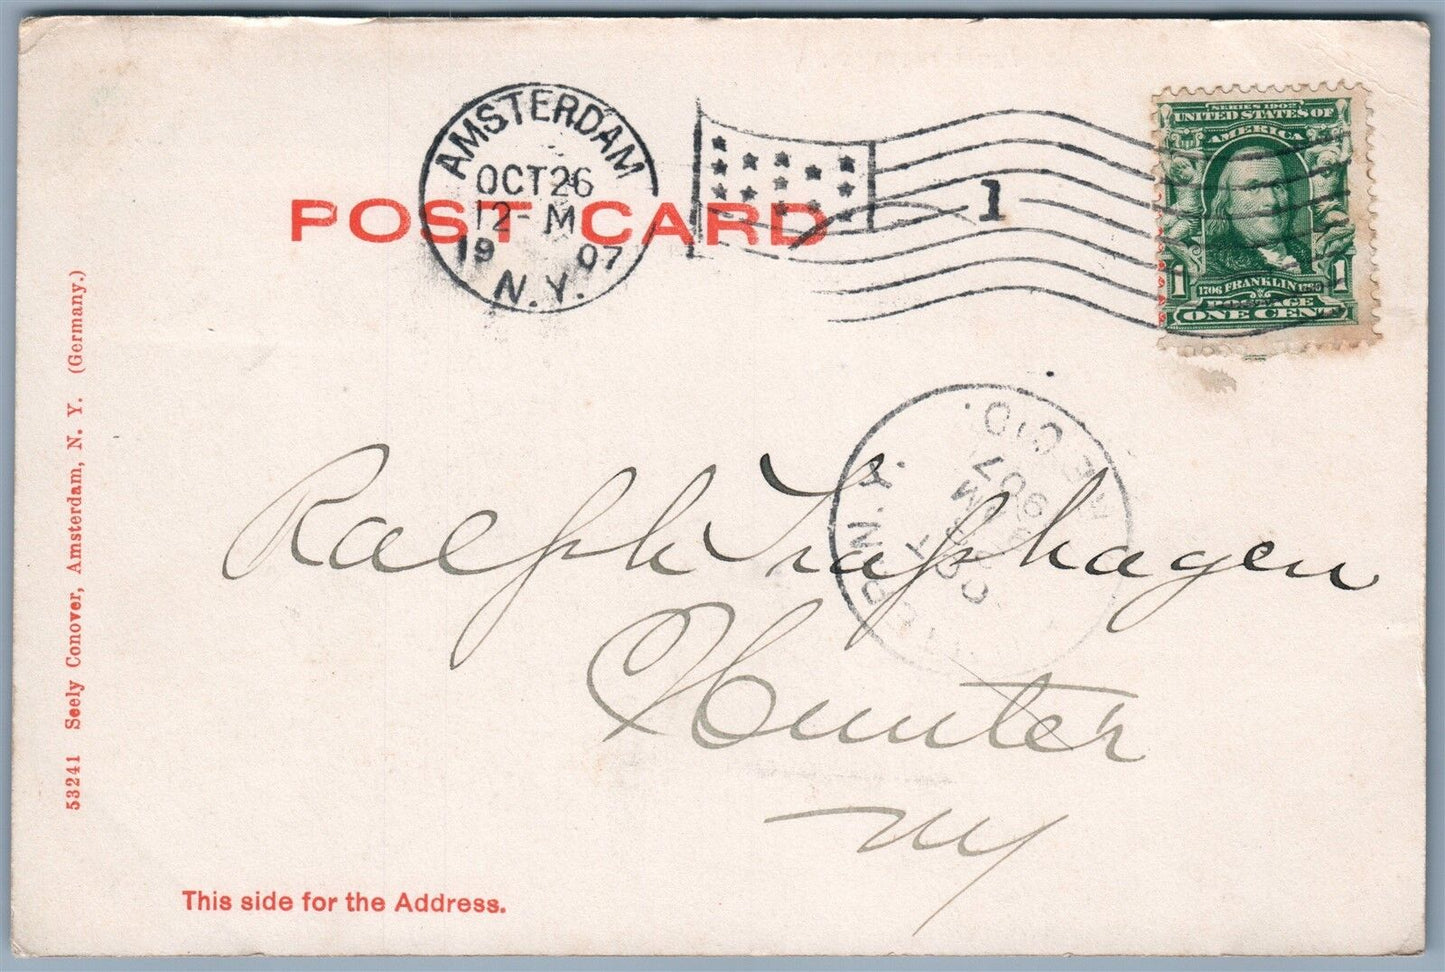 AMSTERDAM
OCT 26
12-M
1907
N.Y.
POST CARD
1
SERIES 1902
UNITED STATES OF
AMERICA
1 1706 FRANKLIN 1790 1
POSTAGE
ONE CENT
53241 Seely Conover, Amsterdam, N. Y. (Germany.)
REC'D.
OCT
M
1907
N.Y.
Ralph Traphagen
Hunter
NY
This side for the Address.